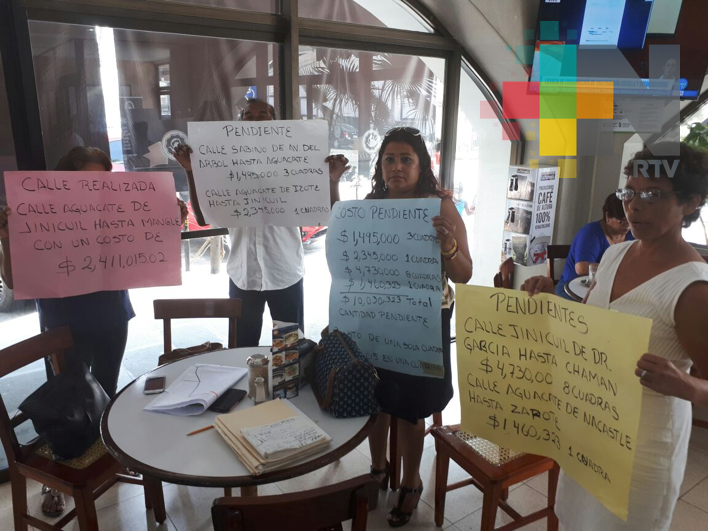 CALLE REALIZADA
CALLE AGUACATE DE
JINICUIL HASTA MANGLE
CON UN COSTO DE
$ 2,411,015.02
PENDIENTE
CALLE SABINO DE AV. DEL
ARBOL HASTA AGUACATE
$ 1,495,000 3 CUADRAS
CALLE AGUACATE DE IZOTE
HASTA JINICUIL
$ 2,345,000 1 CUADRA
COSTO PENDIENTE
$ 1,495,000 3 CUADRAS
$ 2,345,000 1 CUADRA
$ 4,730,000 8 CUADRAS
$ 1,460,323 1 CUADRA
$ 10,030,323 TOTAL
CANTIDAD PENDIENTE
COSTO DE UNA SOLA CUADRA
EN UNA
PENDIENTES
CALLE JINICUIL DE DR.
GARCIA HASTA CHAMAN
$ 4,730,00 8 CUADRAS
CALLE AGUACATE DE NACASTLE
HASTA ZAPOTE
$ 1,460,323 1 CUADRA
CAFÉ
100%
RTV